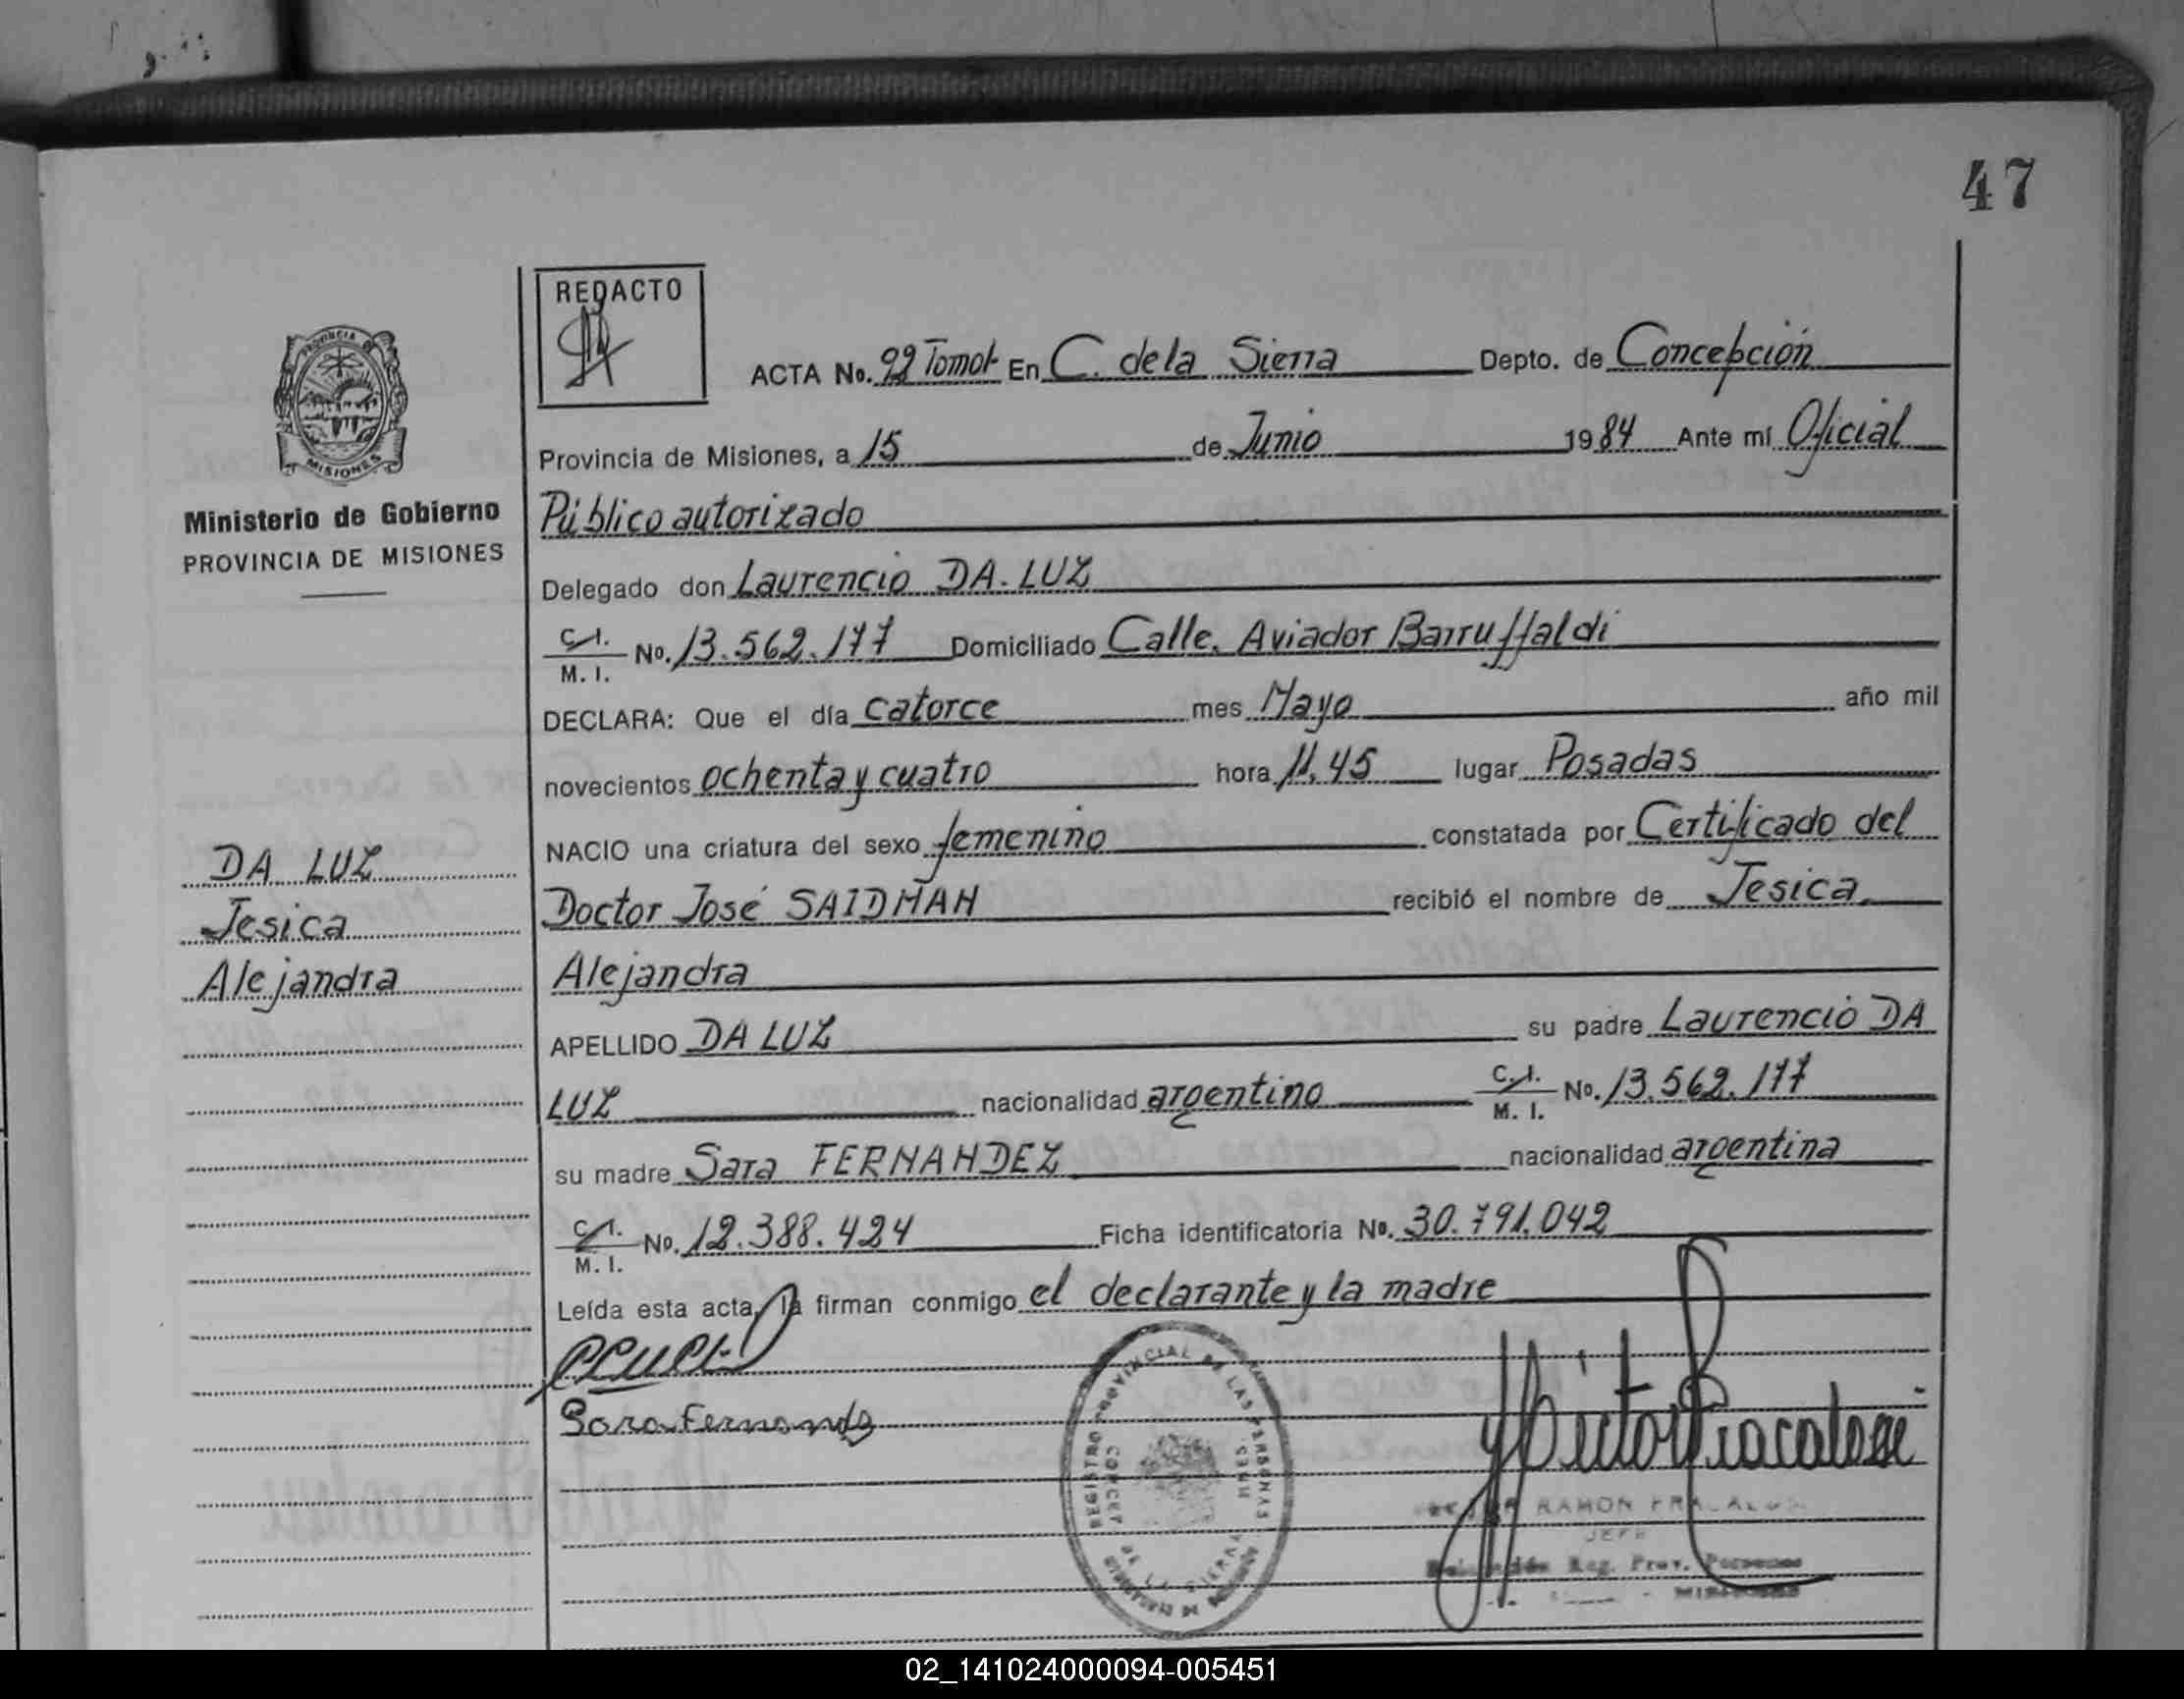 47
REDACTO
ACTA No. 92 Tomo I En C. de la Sierra Depto. de Concepción
Provincia de Misiones, a 15 de Junio 1984 Ante mí Oficial
Público autorizado
Delegado don Laurencio DA LUZ
C. I. M. I. No. 13.562.177 Domiciliado Calle. Aviador Barruffaldi
DECLARA: Que el día catorce mes Mayo año mil
novecientos ochenta y cuatro hora 11,45 lugar Posadas
NACIO una criatura del sexo femenino constatada por Certificado del
Doctor José SAIDMAN recibió el nombre de Jesica
Alejandra
APELLIDO DA LUZ su padre Laurencio DA
LUZ nacionalidad argentino C. I. M. I. No. 13.562.177
su madre Sara FERNANDEZ nacionalidad argentina
C. I. M. I. No. 12.388.424 Ficha identificatoria No. 30.791.042
Leída esta acta, la firman conmigo el declarante y la madre
Sara Fernandz
PROVINCIA DE
MISIONES
Ministerio de Gobierno
PROVINCIA DE MISIONES
DA LUZ
Jesica
Alejandra
REGISTRO PROVINCIAL DE LAS PERSONAS
DE LA SIERRA
RAMON
JEFE
Reg. Prov. Personas
MISIONES
02_141024000094-005451